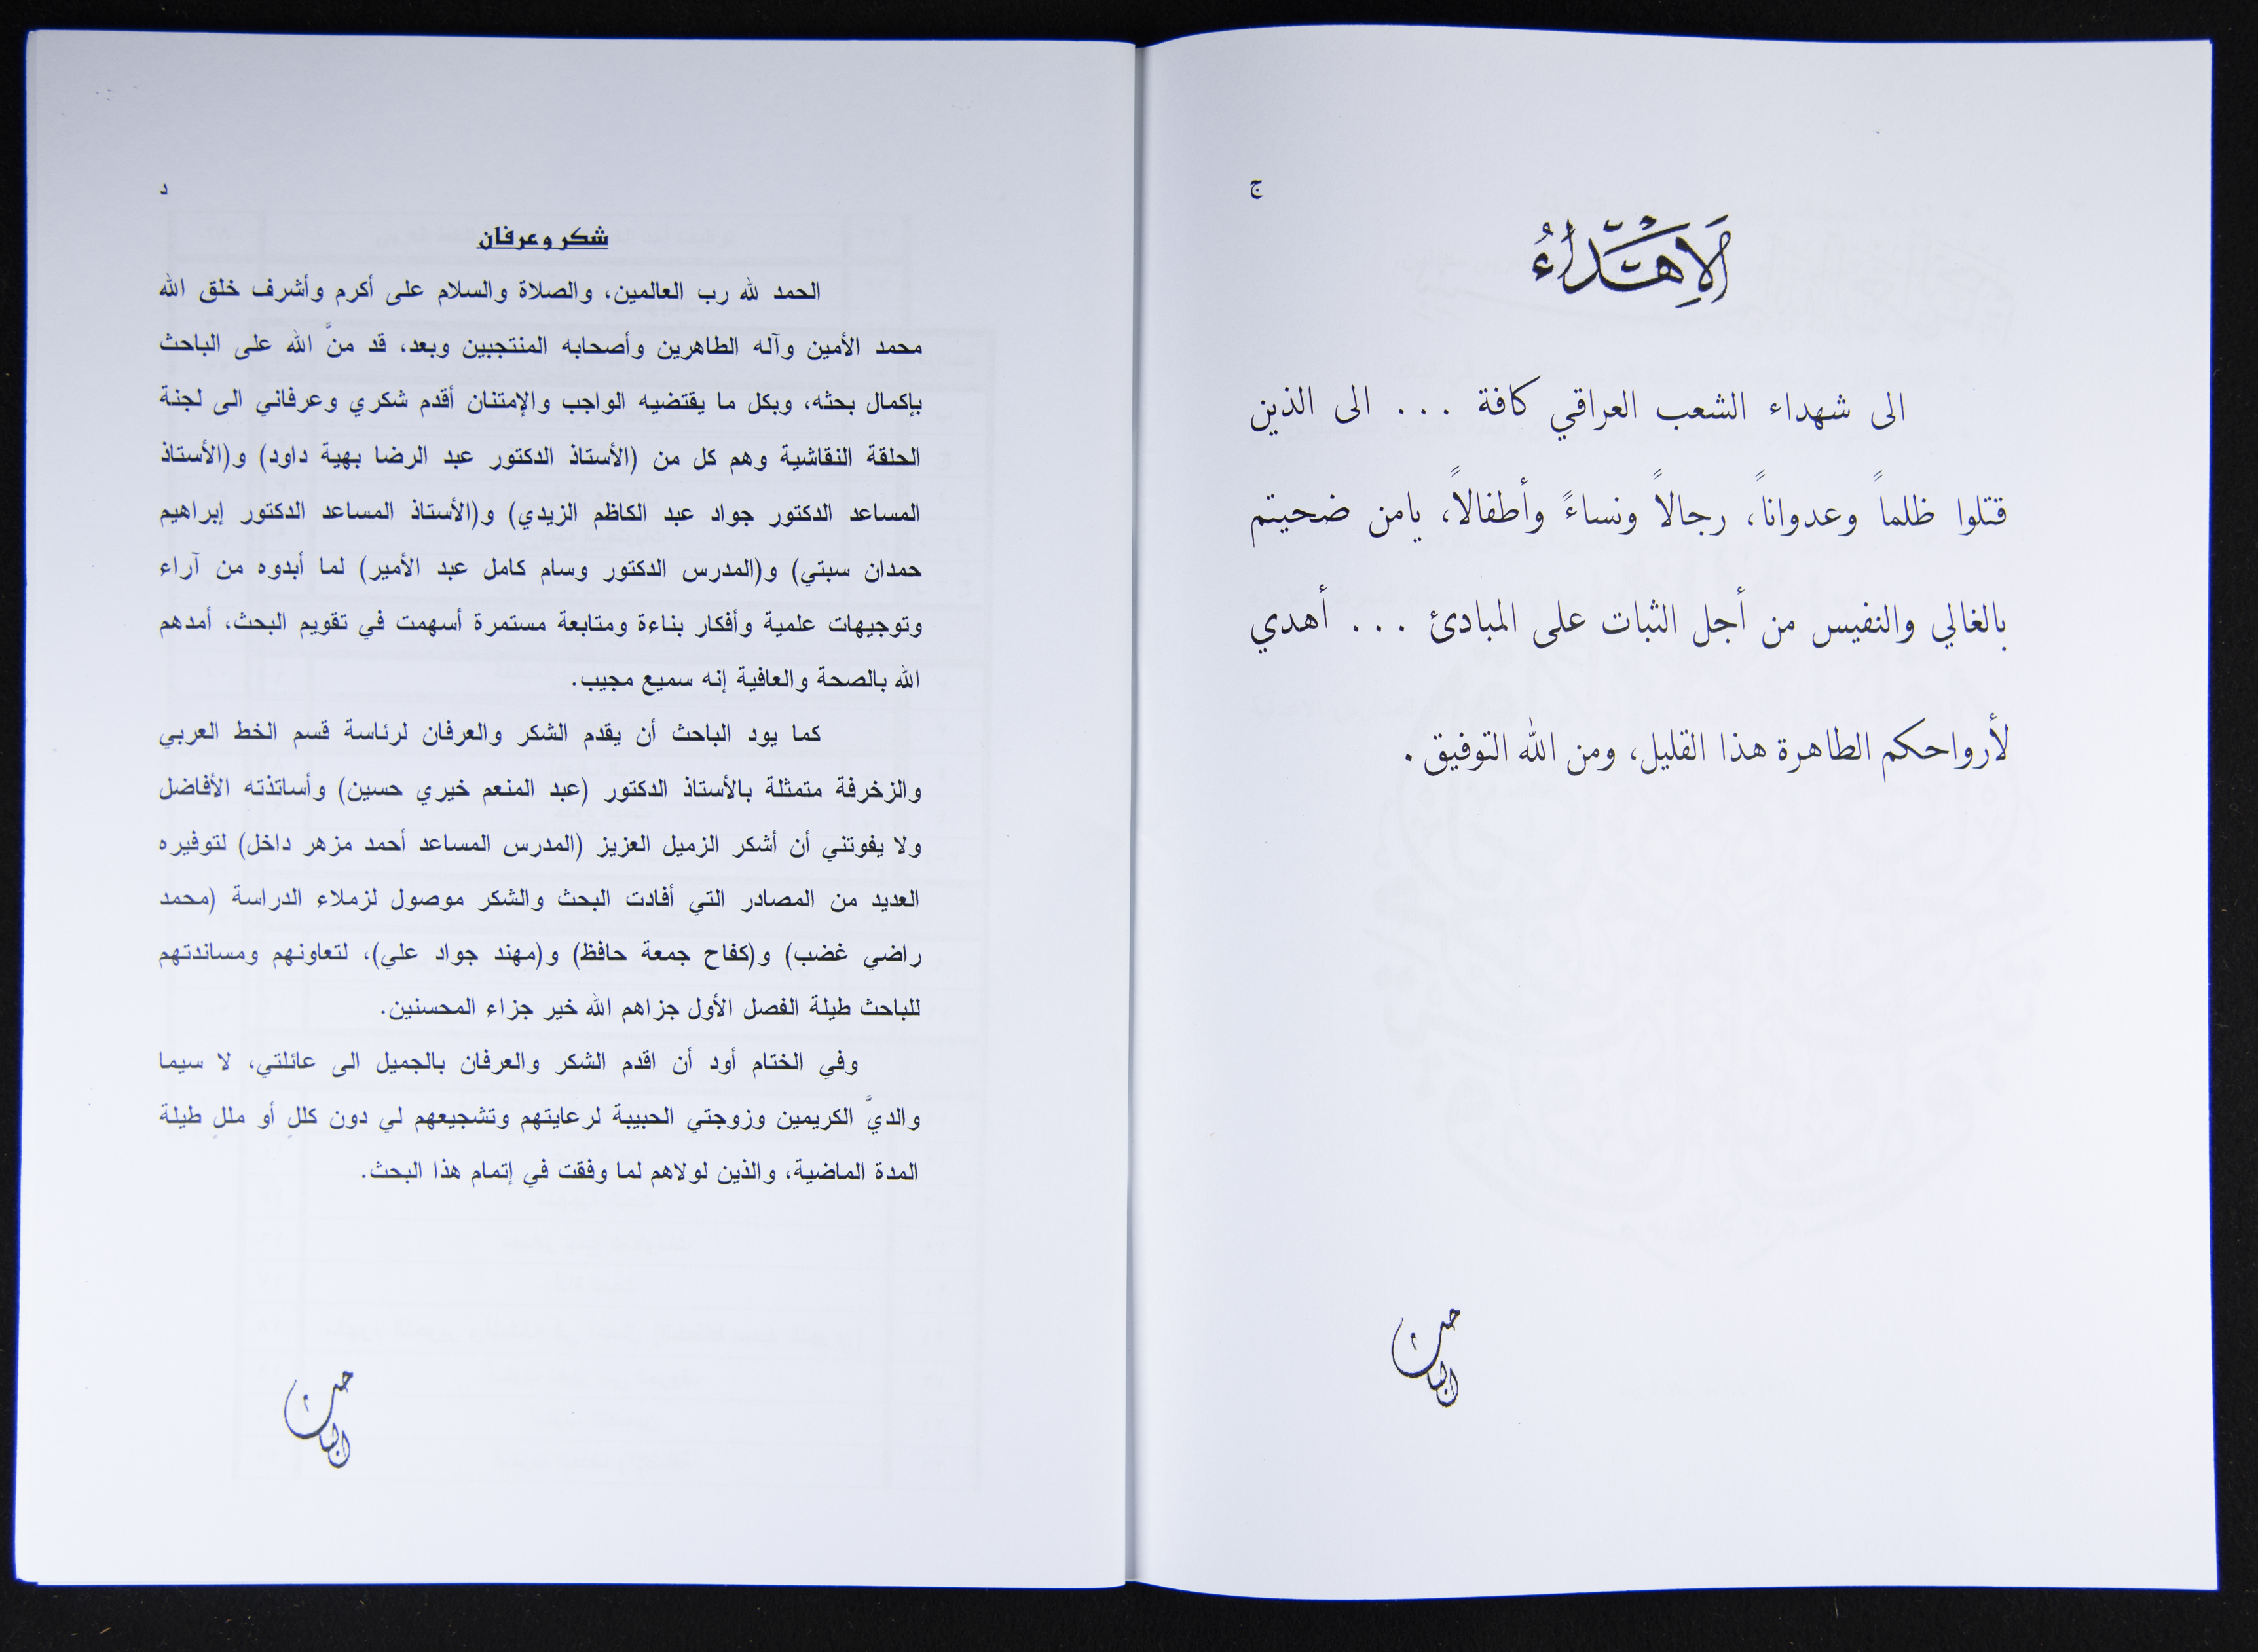 ج
الإهداء
الى شهداء الشعب العراقي كافة ... الى الذين
قتلوا ظلماً وعدواناً، رجالاً ونساءً وأطفالاً، يامن ضحيتم
بالغالي والنفيس من أجل الثبات على المبادئ ... أهدي
لأرواحكم الطاهرة هذا القليل، ومن الله التوفيق.
حسن
د
شكر وعرفان
الحمد لله رب العالمين، والصلاة والسلام على أكرم وأشرف خلق الله
محمد الأمين وآله الطاهرين وأصحابه المنتجبين وبعد، قد منَّ الله على الباحث
بإكمال بحثه، وبكل ما يقتضيه الواجب والإمتنان أقدم شكري وعرفاني الى لجنة
الحلقة النقاشية وهم كل من (الأستاذ الدكتور عبد الرضا بهية داود) و(الأستاذ
المساعد الدكتور جواد عبد الكاظم الزيدي) و(الأستاذ المساعد الدكتور إبراهيم
حمدان سبتي) و(المدرس الدكتور وسام كامل عبد الأمير) لما أبدوه من آراء
وتوجيهات علمية وأفكار بناءة ومتابعة مستمرة أسهمت في تقويم البحث، أمدهم
الله بالصحة والعافية إنه سميع مجيب.
كما يود الباحث أن يقدم الشكر والعرفان لرئاسة قسم الخط العربي
والزخرفة متمثلة بالأستاذ الدكتور (عبد المنعم خيري حسين) وأساتذته الأفاضل
ولا يفوتني أن أشكر الزميل العزيز (المدرس المساعد أحمد مزهر داخل) لتوفيره
العديد من المصادر التي أفادت البحث والشكر موصول لزملاء الدراسة (محمد
راضي غضب) و(كفاح جمعة حافظ) و(مهند جواد علي)، لتعاونهم ومساندتهم
للباحث طيلة الفصل الأول جزاهم الله خير جزاء المحسنين.
وفي الختام أود أن اقدم الشكر والعرفان بالجميل الى عائلتي، لا سيما
والديَّ الكريمين وزوجتي الحبيبة لرعايتهم وتشجيعهم لي دون كللٍ أو مللٍ طيلة
المدة الماضية، والذين لولاهم لما وفقت في إتمام هذا البحث.
حسن